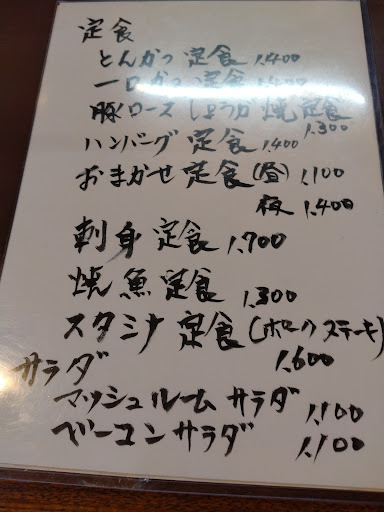 定食
とんかつ定食 1,400
一口かつ定食 1,400
豚ロースしょうが焼定食
1,300
ハンバーグ定食 1,400
おまかせ定食(昼) 1,100
夜 1,400
刺身定食 1,700
焼魚定食 1,300
スタミナ定食(ポークステーキ)
1,600
サラダ
マッシュルームサラダ 1,100
ベーコンサラダ 1,100